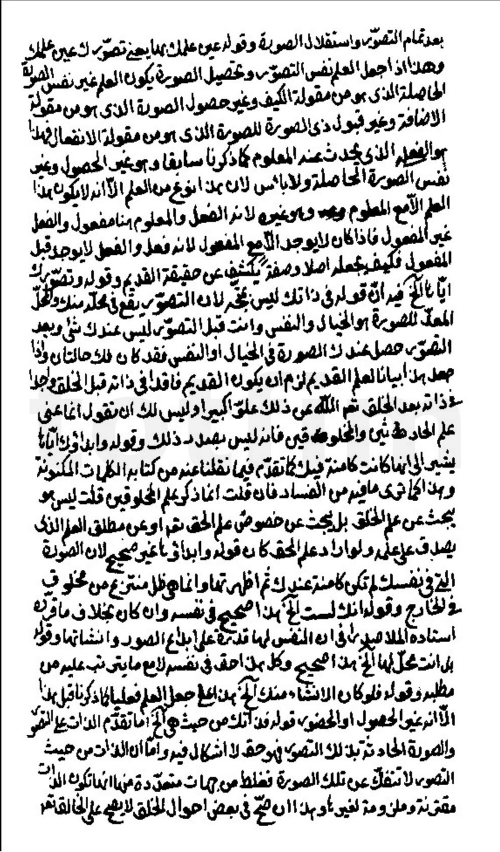 بعد تمام التصوّر واستقلال الصورة وقوله عين علمك بها يعني تصوّرك عين علمك
وهذا اذا جعل العلم نفس التصوّر وتحصيل الصورة يكون العلم غير نفس الصورة
الحاصلة الذى هو من مقولة الكيف وغير حصول الصورة الذى هو من مقولة
الاضافة وغير قبول ذى الصورة للصورة الذى هو من مقولة الانفعال فهذا
هو الفعل الذى يحدث عنه المعلوم كما ذكرنا سابقا وهو غير الحصول وغير
نفس الصورة الحاصلة ولا باس لان هذا نوع من العلم الّا انه لا يكون هذا
العلم الّا مع المعلوم وهو غيره لانه الفعل والمعلوم هنا مفعول والفعل
غير المفعول فاذا كان لا يوجد الّا مع المفعول لانه فعل والفعل لا يوجد قبل
المفعول فكيف يجعله اصلا وصفة يكشف عن حقيقة القديم وقوله وتصوّرك
ايّاها الخ فيه انّ قوله فى ذاتك ليس بمتّجه لان التصوّر يقع فى محلّه منك والمحلّ
المعدّ للصورة هو الخيال والنفس وانت قبل التصوّر ليس عندك شئ وبعد
التصوّر حصل عندك الصورة فى الخيال او النفس فقد كان لك حالتان واذا
جعل هذا بيانا لعلم القديم لزم ان يكون القديم فاقدا فى ذاته قبل الخلق واجدا
فى ذاته بعد الخلق تعالى الله عن ذلك علوّا كبيرا وليس لك ان تقول انما عنى
علم الحادث فانه ليس بصدد ذلك وقوله وابداؤك ايّاها
يشير الى انها كانت كامنة فيك كما تقدّم فيما نقلنا عنه من كتابه الكلمات المكنونة
وهذا كما ترى ما فيه من الفساد فان قلت انما ذكر علم المخلوقين قلت ليس هو
يبحث عن علم الخلق بل يبحث عن خصوص علم الحق تعالى او عن مطلق العلم الذى
يصدق على علمه ولو اراد علم الحق كان قوله وابداؤها غير صحيح لان الصورة
التى فى نفسك لم تكن كامنة عندك ثم اظهرتها وانما هى ظل منتزع من مخلوق
فى الخارج وقوله انك لست الخ هذا صحيح فى نفسه وان كان بخلاف ما قرّره
استاده الملا صدرا فى ان النفس لها قدرة على ابداع الصور وانشائها وقوله
بل انت محلّ لها الخ هذا صحيح وكل هذا حق فى نفسه لا مع ما يترتب عليه من
مطلبه وقوله فلو كان الانشاء منك الخ هذا جعل العلم فعليا كما ذكرنا قبل هذا
الّا انه غير الحصول او الحضور قوله فذاتك من حيث هى الخ امّا تقدّم الذات على التصوّر
والصورة الحادثة بذلك التصوّر فهو حق لا اشكال فيه وامّا ان الذات من حيث
التصوّر لا تنفكّ عن تلك الصورة فغلط من جهات متعدّدة منها انها تكون الذات
مقترنة وملزومة لغيرها وهذا ان صحّ فى بعض احوال الخلق لا يصح على الخالق تعالى